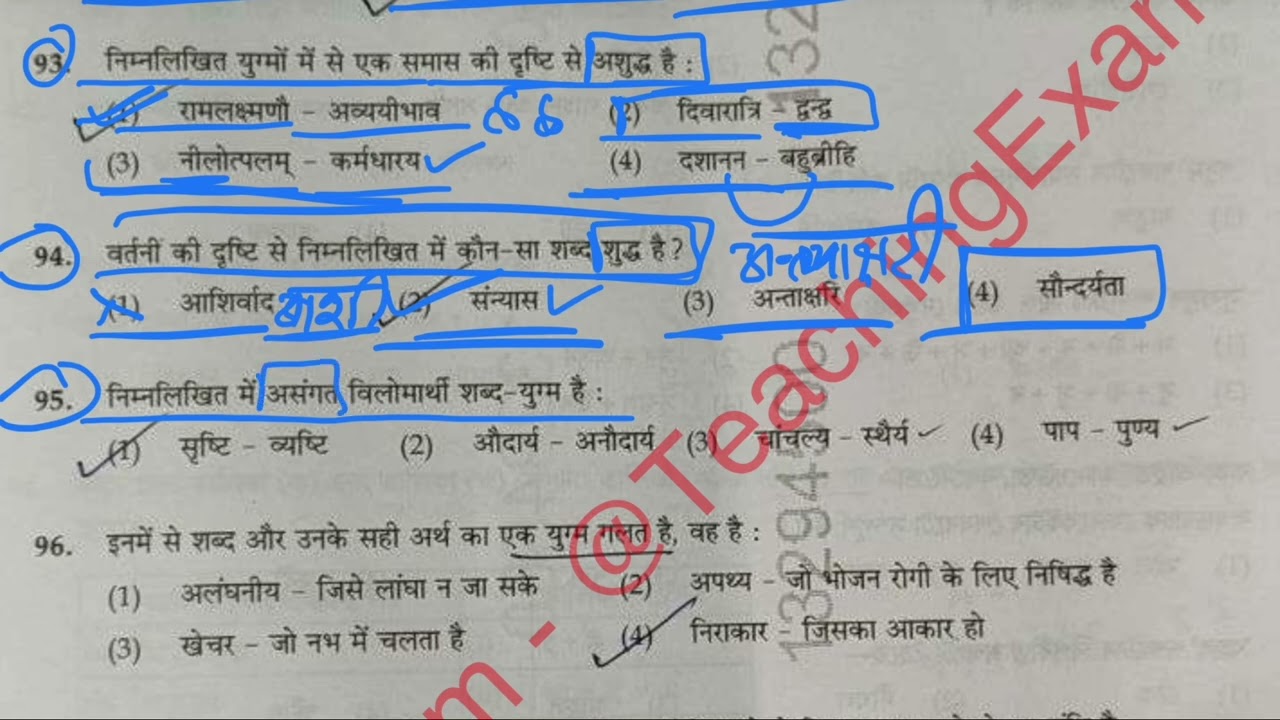 93. निम्नलिखित युग्मों में से एक समास की दृष्टि से अशुद्ध है :
(1) रामलक्ष्मणौ – अव्ययीभाव (2) दिवारात्रि – द्वन्द्व
(3) नीलोत्पलम् – कर्मधारय (4) दशानन – बहुब्रीहि
94. वर्तनी की दृष्टि से निम्नलिखित में कौन-सा शब्द शुद्ध है?
अन्त्याक्षरी
(1) आशिर्वाद (2) संन्यास (3) अन्ताक्षरि (4) सौन्दर्यता
95. निम्नलिखित में असंगत विलोमार्थी शब्द-युग्म है :
(1) सृष्टि – व्यष्टि (2) औदार्य – अनौदार्य (3) चांचल्य – स्थैर्य (4) पाप – पुण्य
96. इनमें से शब्द और उनके सही अर्थ का एक युग्म गलत है, वह है :
(1) अलंघनीय – जिसे लांघा न जा सके (2) अपथ्य – जो भोजन रोगी के लिए निषिद्ध है
(3) खेचर – जो नभ में चलता है (4) निराकार – जिसका आकार हो
m - @TeachingExam